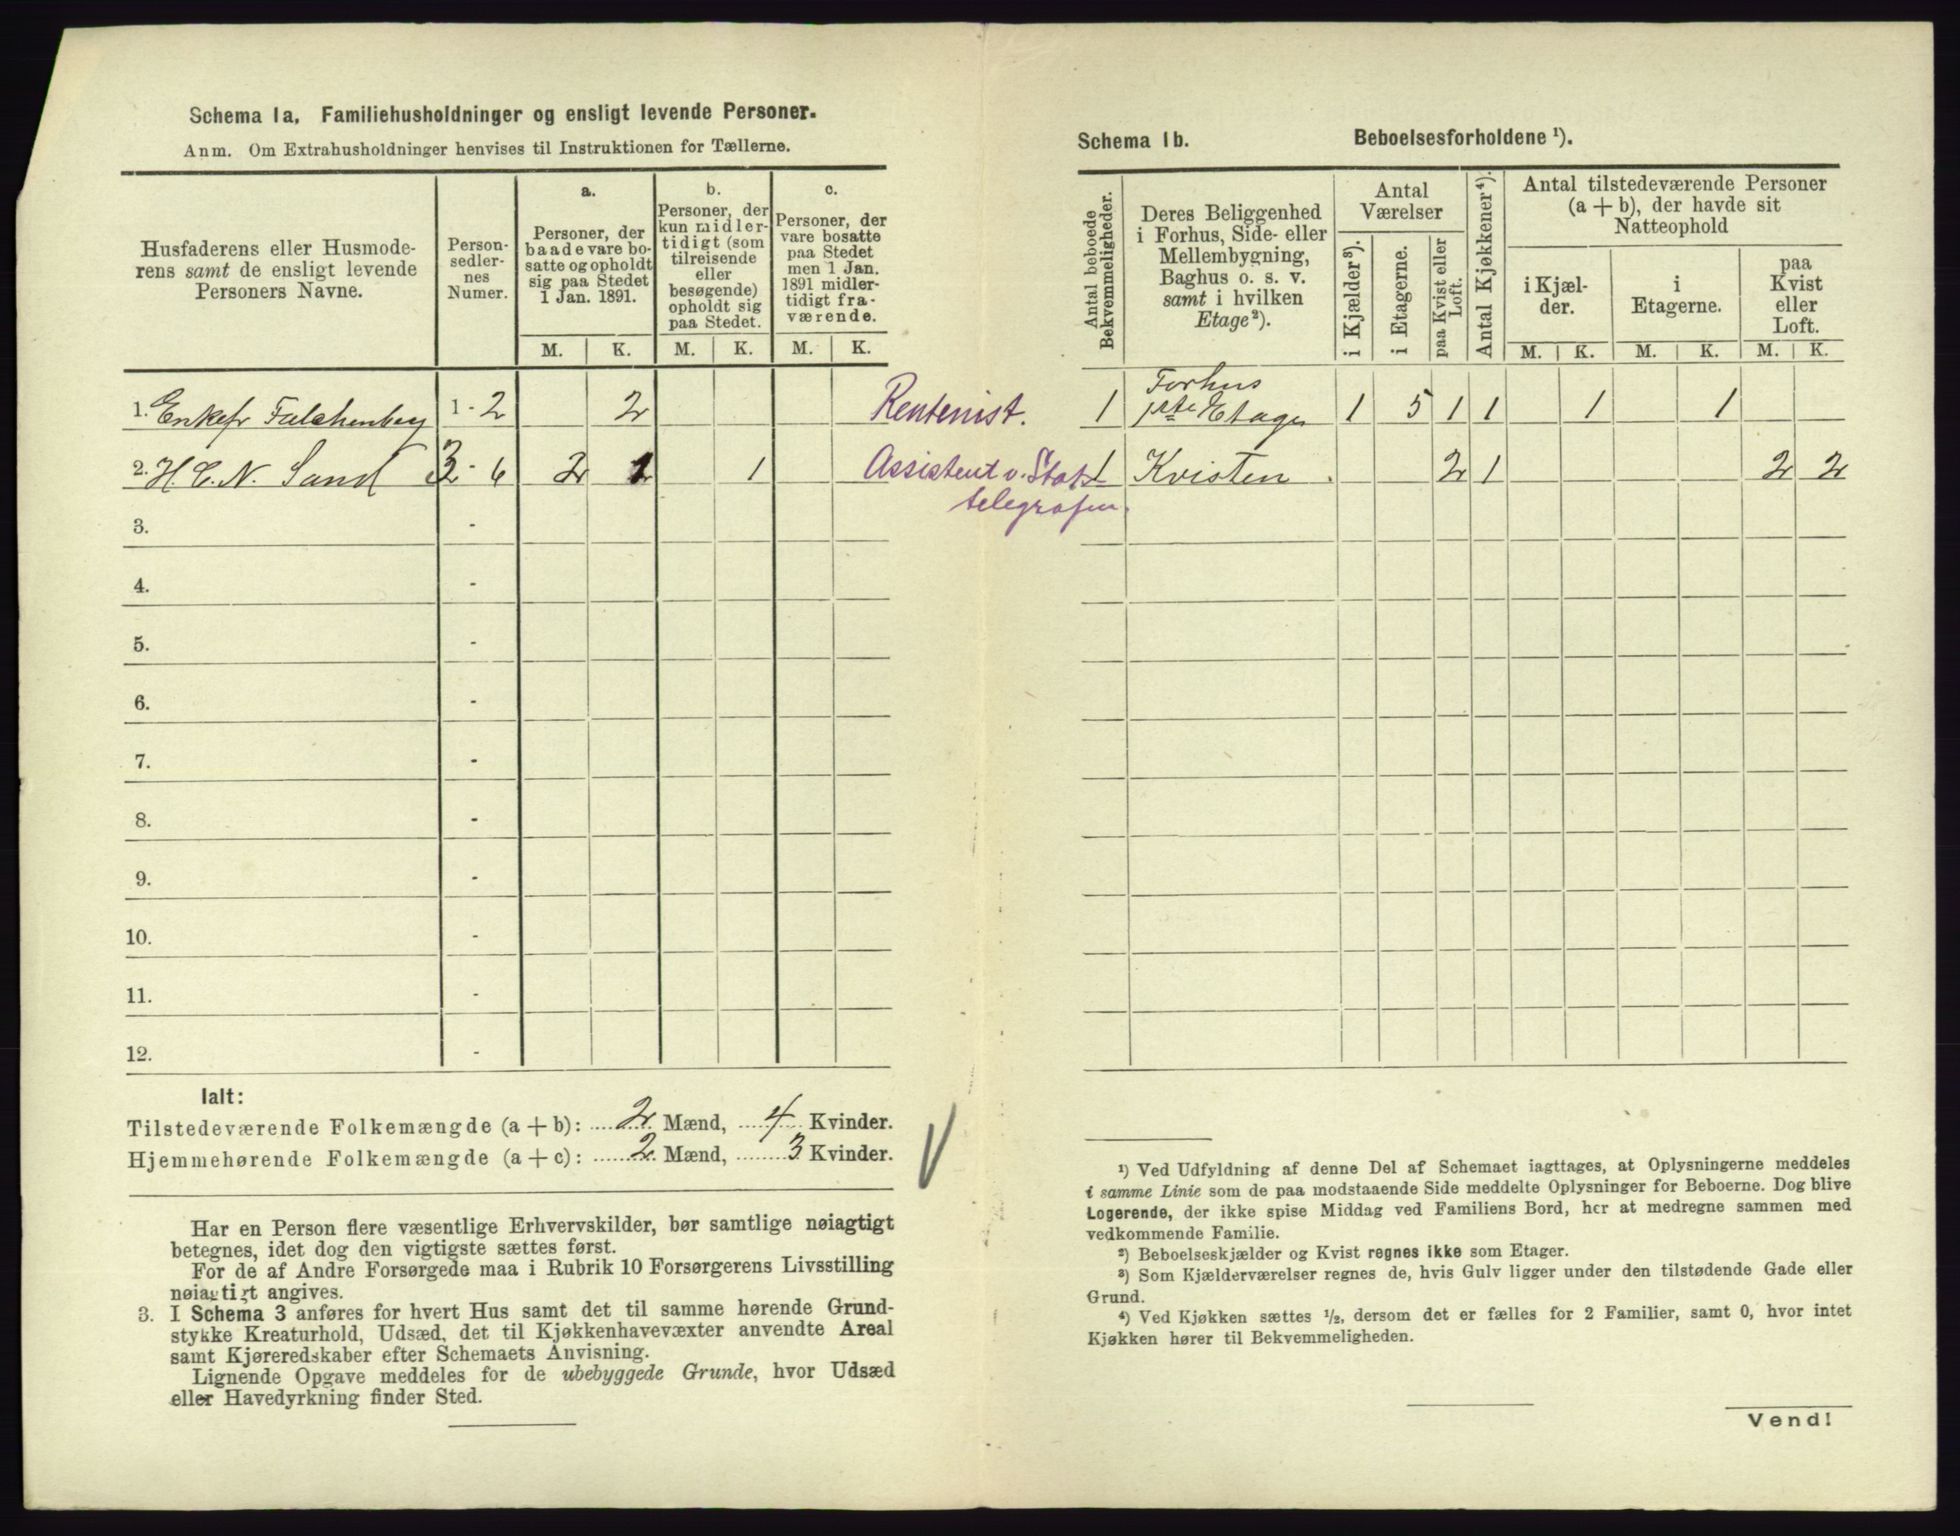 Schema 1a. Familiehusholdninger og ensligt levende Personer.
Anm. Om Extrahusholdninger henvises til Instruktionen for Tællerne.
Husfaderens eller Husmode-
rens samt de ensligt levende
Personers Navne.
Person-
sedler-
nes
Numer.
a.
Personer, der
baade vare bo-
satte og opholdt
sig paa Stedet
1 Jan. 1891.
M. K.
b.
Personer, der
kun midler-
tidigt (som
tilreisende
eller
besøgende)
opholdt sig
paa Stedet.
M. K.
c.
Personer, der
vare bosatte
paa Stedet
men 1 Jan.
1891 midler-
tidigt fra-
værende.
M. K.
1. Enkefr Falchenberg 1 - 2 2 Rentenist.
2. H. C. N. Sand 3 - 6 2 1 Assistent v. Stats
telegrafen.
3. -
4. -
5. -
6. -
7. -
8. -
9. -
10. -
11. -
12. -
Ialt:
Tilstedeværende Folkemængde (a + b): 2 Mænd, 4 Kvinder.
Hjemmehørende Folkemængde (a + c): 2 Mænd, 3 Kvinder.
Har en Person flere væsentlige Erhvervskilder, bør samtlige nøiagtigt
betegnes, idet dog den vigtigste sættes først.
For de af Andre Forsørgede maa i Rubrik 10 Forsørgerens Livsstilling
nøiagtigt angives.
3. I Schema 3 anføres for hvert Hus samt det til samme hørende Grund-
stykke Kreaturhold, Udsæd, det til Kjøkkenhavevæxter anvendte Areal
samt Kjøreredskaber efter Schemaets Anvisning.
Lignende Opgave meddeles for de ubebyggede Grunde, hvor Udsæd
eller Havedyrkning finder Sted.
Schema 1b. Beboelsesforholdene ¹).
Antal beboede
Bekvemmeligheder.
Deres Beliggenhed
i Forhus, Side- eller
Mellembygning,
Baghus o. s. v.
samt i hvilken
Etage²).
Antal
Værelser
i Kjælder³).
i Etagerne.
paa Kvist eller
Loft.
Antal Kjøkkener⁴).
Antal tilstedeværende Personer
(a + b), der havde sit
Natteophold
i Kjæl-
der.
i
Etagerne.
paa
Kvist
eller
Loft.
M. K. M. K. M. K.
1 Forhus
1ste Etage 1 5 1 1 1 1
1 Kvisten 2 1 2 2
¹) Ved Udfyldning af denne Del af Schemaet iagttages, at Oplysningerne meddeles
i samme Linie som de paa modstaaende Side meddelte Oplysninger for Beboerne. Dog blive
Logerende, der ikke spise Middag ved Familiens Bord, her at medregne sammen med
vedkommende Familie.
²) Beboelseskjælder og Kvist regnes ikke som Etager.
³) Som Kjælderværelser regnes de, hvis Gulv ligger under den tilstødende Gade eller
Grund.
⁴) Ved Kjøkken sættes ½, dersom det er fælles for 2 Familier, samt 0, hvor intet
Kjøkken hører til Bekvemmeligheden.
Vend!